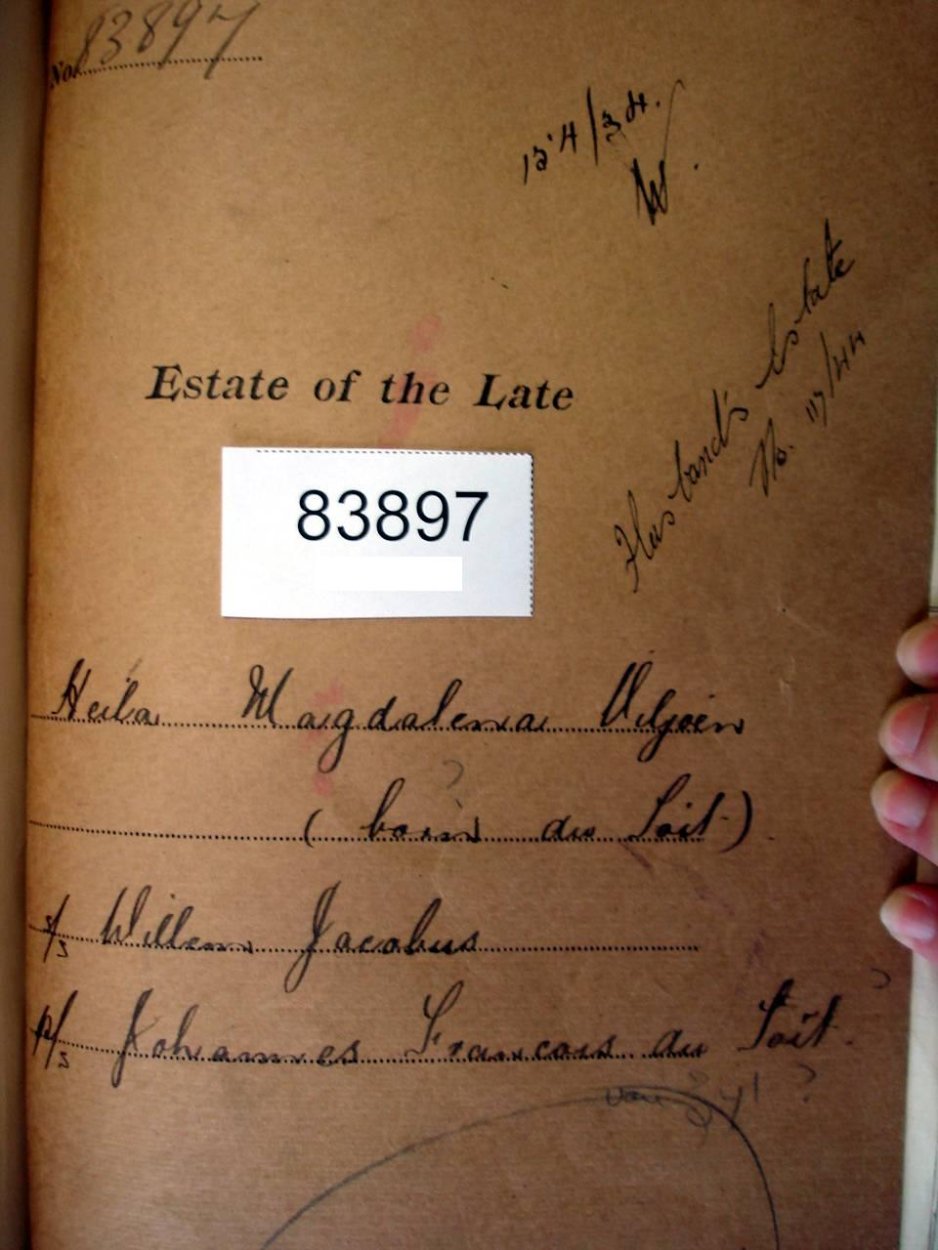 No. 83897
12.4/34.
Husband's Estate
No. 117/44
Estate of the Late
83897
Heila Magdalena Viljoen
?
( born du Toit )
s/s Willem Jacobus
p/s Johannes Francois du Toit.
?
van Zyl ?